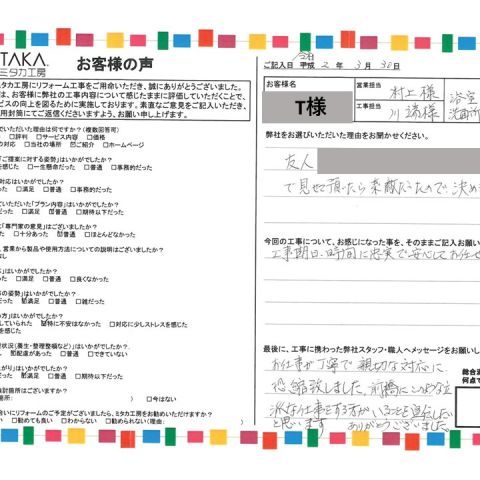 TAKA.
ミタカ工房
お客様の声
タカ工房にリフォーム工事をご用命いただき、誠にありがとうございました。
は、お客様に弊社の工事内容について感じたままに評価していただくことで、
ビスの向上を図るために実施しております。率直なご意見をご記入いただき、
用封筒にてご返信くださいますよう、お願い申し上げます。
でいただいた理由は何ですか?(複数回答可)
□評判 □サービス内容 □価格
の対応 □当社の場所 ☑ご紹介 □ホームページ
「ご提案に対する姿勢」はいかがでしたか?
を感じた □一生懸命だった □普通 □事務的だった
対応はいかがでしたか?
った □満足 □普通 □事務的だった
ていただいた「プラン内容」はいかがでしたか?
った □満足 □普通 □期待以下だった
「専門家の意見」はございましたか?
た □十分あった ☑普通 □ほとんどなかった
、営業から製品や使用方法についての説明はございましたか?
なし
」はいかがでしたか?
だった □満足 □普通 □良くなかった
の姿勢」はいかがでしたか?
だった □普通 □雑だった
い方」はいかがでしたか?
していられた ☑特に不安はなかった □対応に少しストレスを感じた
を感じた
状況(養生・整理整頓など)」はいかがでしたか?
☑配慮があった □普通 □できていない
がり」はいかがでしたか?
った □満足 □普通 □期待以下だった
検討箇所はございますか?
) □今はない
合いにリフォームのご予定がございましたら、ミタカ工房をお勧めいただけますか?
い □勧めても良い □わからない □勧められない(理由: )
ご記入日 平成 令和 2 年 3 月 30 日
お客様名
T様
営業担当 村上 様
工事担当 川端 様
浴室
洗面所
弊社をお選びいただいた理由をお聞かせください。
友人
で見せて頂いたら素敵だったので決め
今回の工事について、お感じになった事を、そのままご記入お願い
工事期日、時間に忠実で安心してお任せ
最後に、工事に携わった弊社スタッフ・職人へメッセージをお願いし
お仕事が丁寧で親切な対応に
恐縮致しました。前橋にこのような立
派な仕事をする方がいることを宣伝したい
と思います ありがとうございました。
総合
何点で